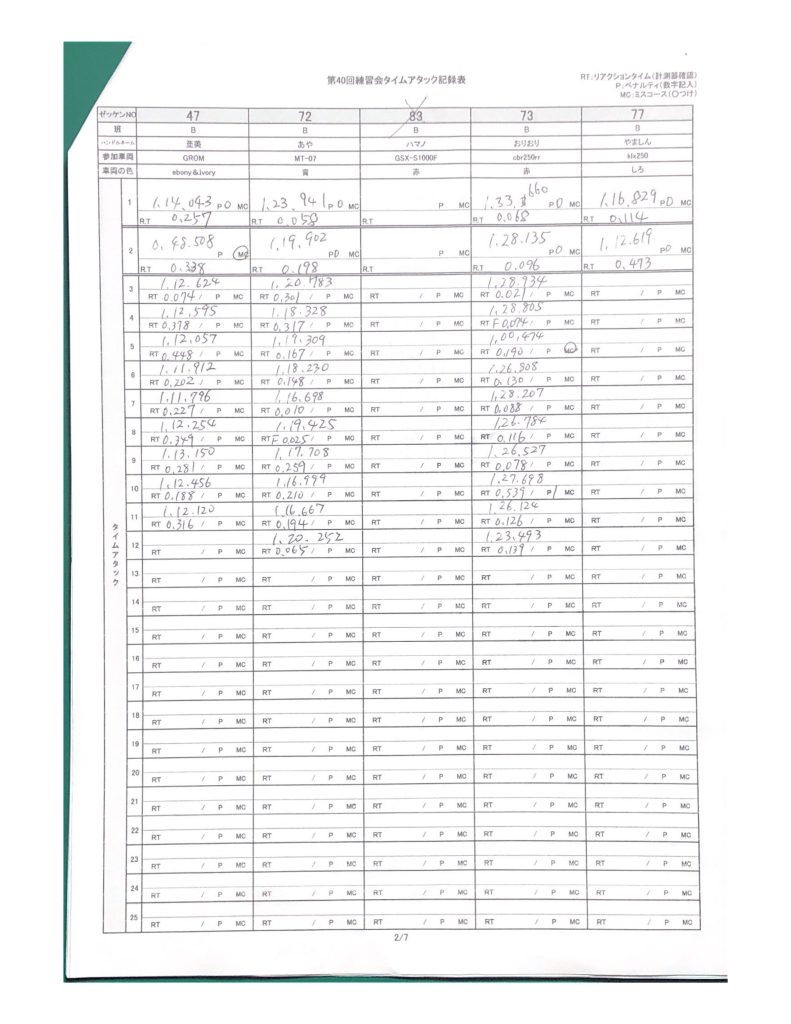 第40回練習会タイムアタック記録表
RT:リアクションタイム(計測器確認)
P:ペナルティ(数字記入)
MC:ミスコース(〇つけ)
ゼッケンNO 47 72 83 73 77
班 B B B B B
ハンドルネーム 亜美 あや ハマノ おりおり やましん
参加車両 GROM MT-07 GSX-S1000F cbr250rr klx250
車両の色 ebony &ivory 青 赤 赤 しろ
タイムアタック
1 1,14.043 P 0 MC 1,23.941 P 0 MC P MC 1.33. 660 P 0 MC 1,16.829 P 0 MC
R.T 0.257 R.T 0.058 R.T R.T 0.068 R.T 0.114
2 0,48.508 P MC 1,19.902 P 0 MC P MC 1.28.135 P 0 MC 1,12.619 P 0 MC
R.T 0.338 R.T 0.198 R.T R.T 0.096 R.T 0.473
3 1,12.624 1,20.783 1,28.934
RT 0.074 / P MC RT 0.301 / P MC RT / P MC RT 0.021 / P MC RT / P MC
4 1,12.595 1.18.328 1,28.805
RT 0.378 / P MC RT 0.317 / P MC RT / P MC RT F 0.074 / P MC RT / P MC
5 1,12.057 1,19.309 1,00.474
RT 0.448 / P MC RT 0.167 / P MC RT / P MC RT 0.190 / P MC RT / P MC
6 1.11.912 1,18.230 1,26.808
RT 0.202 / P MC RT 0.148 / P MC RT / P MC RT 0.130 / P MC RT / P MC
7 1.11.796 1,16.698 1,28.207
RT 0.227 / P MC RT 0.010 / P MC RT / P MC RT 0.088 / P MC RT / P MC
8 1,12.254 1,19.425 1,26.784
RT 0.349 / P MC RT F 0.025 / P MC RT / P MC RT 0.116 / P MC RT / P MC
9 1.13.150 1,17.708 1,26.527
RT 0.281 / P MC RT 0.259 / P MC RT / P MC RT 0.078 / P MC RT / P MC
10 1,12.456 1,16.999 1.27.698
RT 0.188 / P MC RT 0.210 / P MC RT / P MC RT 0.539 / P 1 MC RT / P MC
11 1,12.120 1,16.667 1.26.124
RT 0.316 / P MC RT 0.194 / P MC RT / P MC RT 0.126 / P MC RT / P MC
12 1.20.252 1.23.493
RT / P MC RT 0.065 / P MC RT / P MC RT 0.139 / P MC RT / P MC
13 RT / P MC RT / P MC RT / P MC RT / P MC RT / P MC
14 RT / P MC RT / P MC RT / P MC RT / P MC RT / P MC
15 RT / P MC RT / P MC RT / P MC RT / P MC RT / P MC
16 RT / P MC RT / P MC RT / P MC RT / P MC RT / P MC
17 RT / P MC RT / P MC RT / P MC RT / P MC RT / P MC
18 RT / P MC RT / P MC RT / P MC RT / P MC RT / P MC
19 RT / P MC RT / P MC RT / P MC RT / P MC RT / P MC
20 RT / P MC RT / P MC RT / P MC RT / P MC RT / P MC
21 RT / P MC RT / P MC RT / P MC RT / P MC RT / P MC
22 RT / P MC RT / P MC RT / P MC RT / P MC RT / P MC
23 RT / P MC RT / P MC RT / P MC RT / P MC RT / P MC
24 RT / P MC RT / P MC RT / P MC RT / P MC RT / P MC
25 RT / P MC RT / P MC RT / P MC RT / P MC RT / P MC
2/7